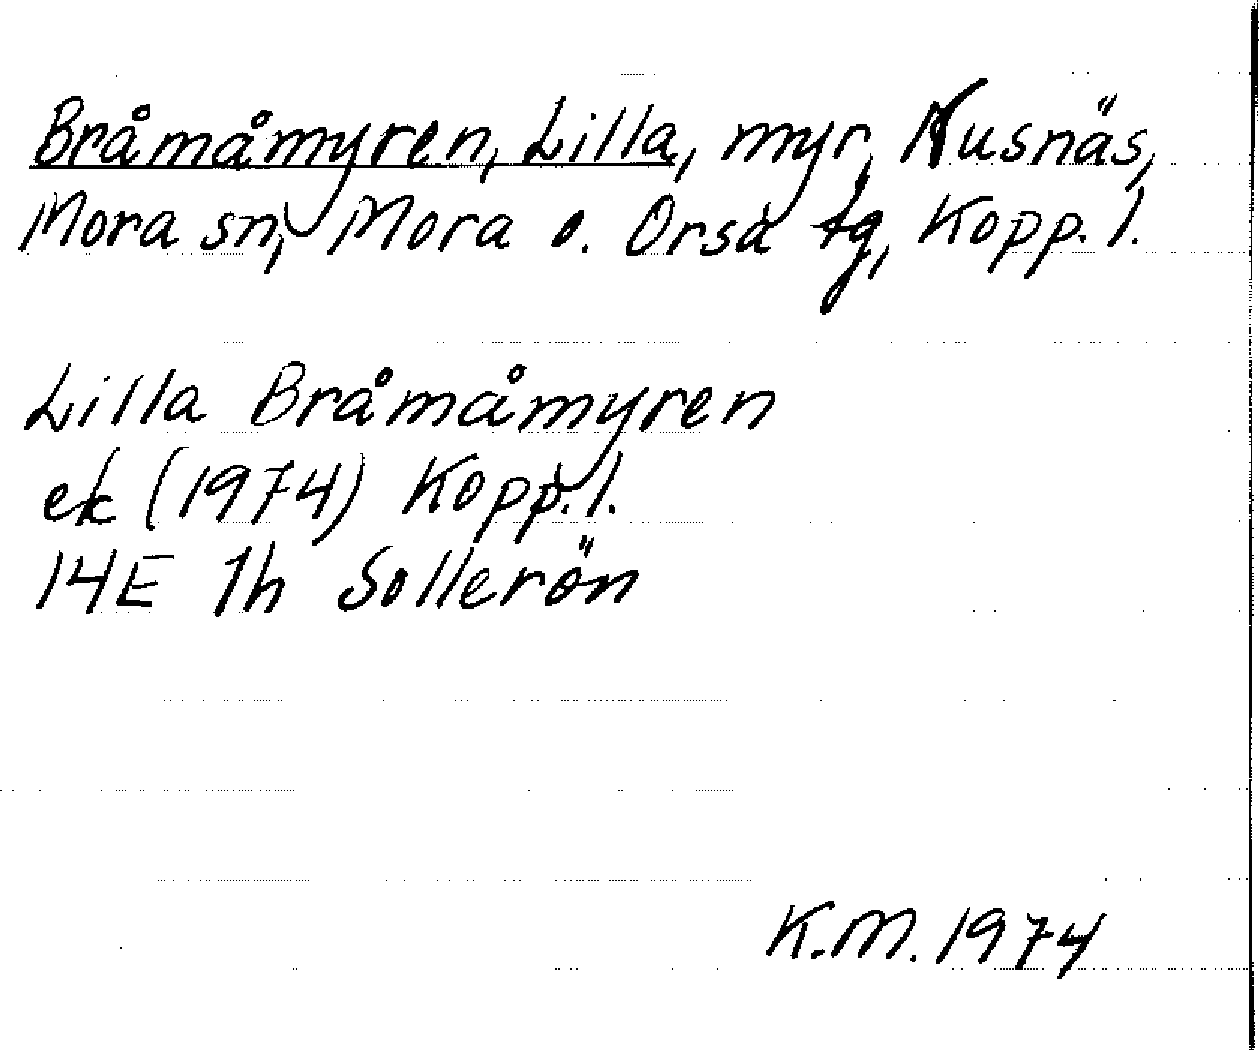 Bråmåmyren, Lilla, myr, Nusnäs,
Mora sn, Mora o. Orsa tg, Kopp. l.
Lilla Bråmåmyren
ek (1974) Kopp. l.
14E 1h Sollerön
K.M. 1974